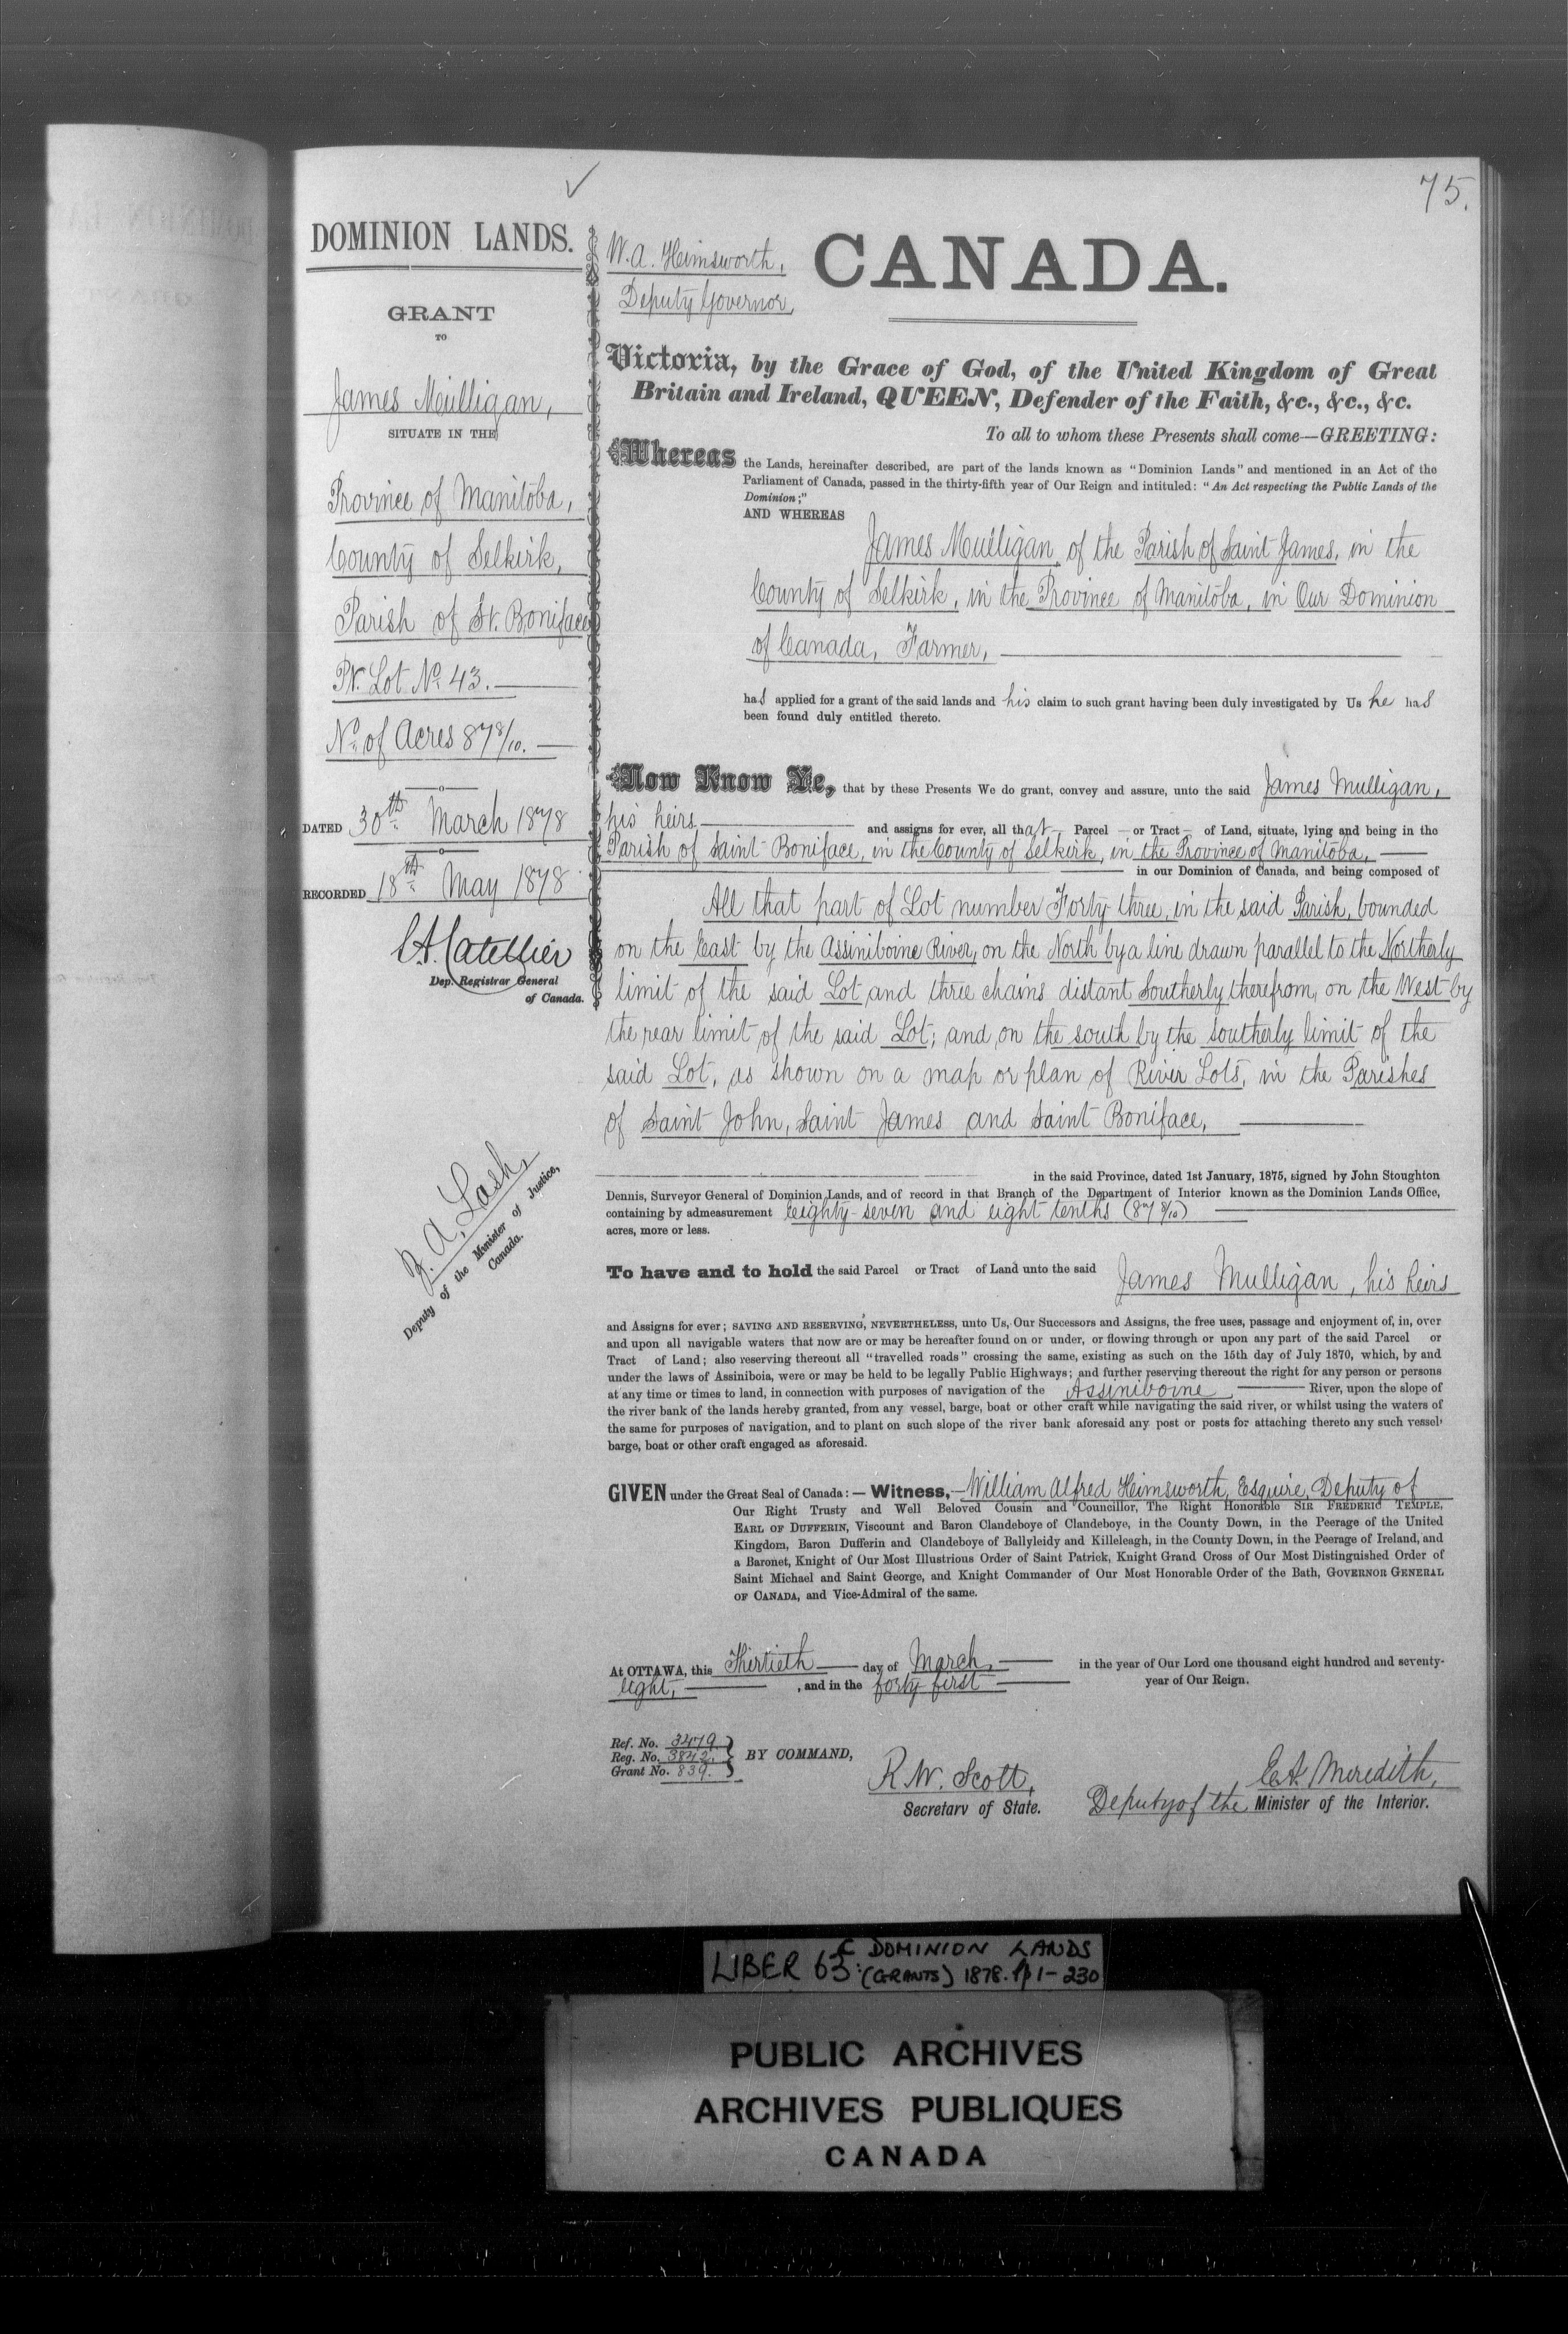 75.
DOMINION LANDS.
GRANT
TO
James Mulligan,
SITUATE IN THE
Province of Manitoba,
County of Selkirk,
Parish of St. Boniface
Pt. Lot No. 43.
No. of Acres 87 8/10.
DATED 30th March 1878
RECORDED 18th May 1878
Dep. Registrar General
of Canada.
Z. A. Lash,
Deputy of the Minister of Justice,
Canada.
W. A. Himsworth,
Deputy Governor,
CANADA.
Victoria, by the Grace of God, of the United Kingdom of Great
Britain and Ireland, QUEEN, Defender of the Faith, &c., &c., &c.
To all to whom these Presents shall come—GREETING:
Whereas the Lands, hereinafter described, are part of the lands known as "Dominion Lands" and mentioned in an Act of the
Parliament of Canada, passed in the thirty-fifth year of Our Reign and intituled: "An Act respecting the Public Lands of the
Dominion;"
AND WHEREAS
James Mulligan, of the Parish of Saint James, in the
County of Selkirk, in the Province of Manitoba, in Our Dominion
of Canada, Farmer,
has applied for a grant of the said lands and his claim to such grant having been duly investigated by Us he has
been found duly entitled thereto.
Now Know Ye, that by these Presents We do grant, convey and assure, unto the said James Mulligan,
his heirs and assigns for ever, all that Parcel or Tract of Land, situate, lying and being in the
Parish of Saint Boniface, in the County of Selkirk, in the Province of Manitoba,
in our Dominion of Canada, and being composed of
All that part of Lot number Forty three, in the said Parish, bounded
on the East by the Assiniboine River, on the North by a line drawn parallel to the Northerly
limit of the said Lot and three chains distant Southerly therefrom, on the West by
the rear limit of the said Lot; and on the south by the southerly limit of the
said Lot, as shown on a map or plan of River Lots, in the Parishes
of Saint John, Saint James and Saint Boniface,
in the said Province, dated 1st January, 1875, signed by John Stoughton
Dennis, Surveyor General of Dominion Lands, and of record in that Branch of the Department of Interior known as the Dominion Lands Office,
containing by admeasurement Eighty-seven and eight tenths (87 8/10)
acres, more or less.
To have and to hold the said Parcel or Tract of Land unto the said James Mulligan, his heirs
and Assigns for ever; SAVING AND RESERVING, NEVERTHELESS, unto Us, Our Successors and Assigns, the free uses, passage and enjoyment of, in, over
and upon all navigable waters that now are or may be hereafter found on or under, or flowing through or upon any part of the said Parcel or
Tract of Land; also reserving thereout all "travelled roads" crossing the same, existing as such on the 15th day of July 1870, which, by and
under the laws of Assiniboia, were or may be held to be legally Public Highways; and further reserving thereout the right for any person or persons
at any time or times to land, in connection with purposes of navigation of the Assiniboine River, upon the slope of
the river bank of the lands hereby granted, from any vessel, barge, boat or other craft while navigating the said river, or whilst using the waters of
the same for purposes of navigation, and to plant on such slope of the river bank aforesaid any post or posts for attaching thereto any such vessel,
barge, boat or other craft engaged as aforesaid.
GIVEN under the Great Seal of Canada:—Witness,—William Alfred Himsworth, Esquire, Deputy of
Our Right Trusty and Well Beloved Cousin and Councillor, The Right Honorable SIR FREDERIC TEMPLE,
EARL OF DUFFERIN, Viscount and Baron Clandeboye of Clandeboye, in the County Down, in the Peerage of the United
Kingdom, Baron Dufferin and Clandeboye of Ballyleidy and Killeleagh, in the County Down, in the Peerage of Ireland, and
a Baronet, Knight of Our Most Illustrious Order of Saint Patrick, Knight Grand Cross of Our Most Distinguished Order of
Saint Michael and Saint George, and Knight Commander of Our Most Honorable Order of the Bath, GOVERNOR GENERAL
OF CANADA, and Vice-Admiral of the same.
At OTTAWA, this Thirtieth day of March, in the year of Our Lord one thousand eight hundred and seventy-
eight, , and in the forty first year of Our Reign.
Ref. No. 3479
Reg. No. 3842.
Grant No. 839.
BY COMMAND,
R. W. Scott,
Secretary of State.
E. A. Meredith,
Deputy of the Minister of the Interior.
LIBER 63: C DOMINION LANDS
(GRANTS) 1878. pp 1-230
PUBLIC ARCHIVES
ARCHIVES PUBLIQUES
CANADA